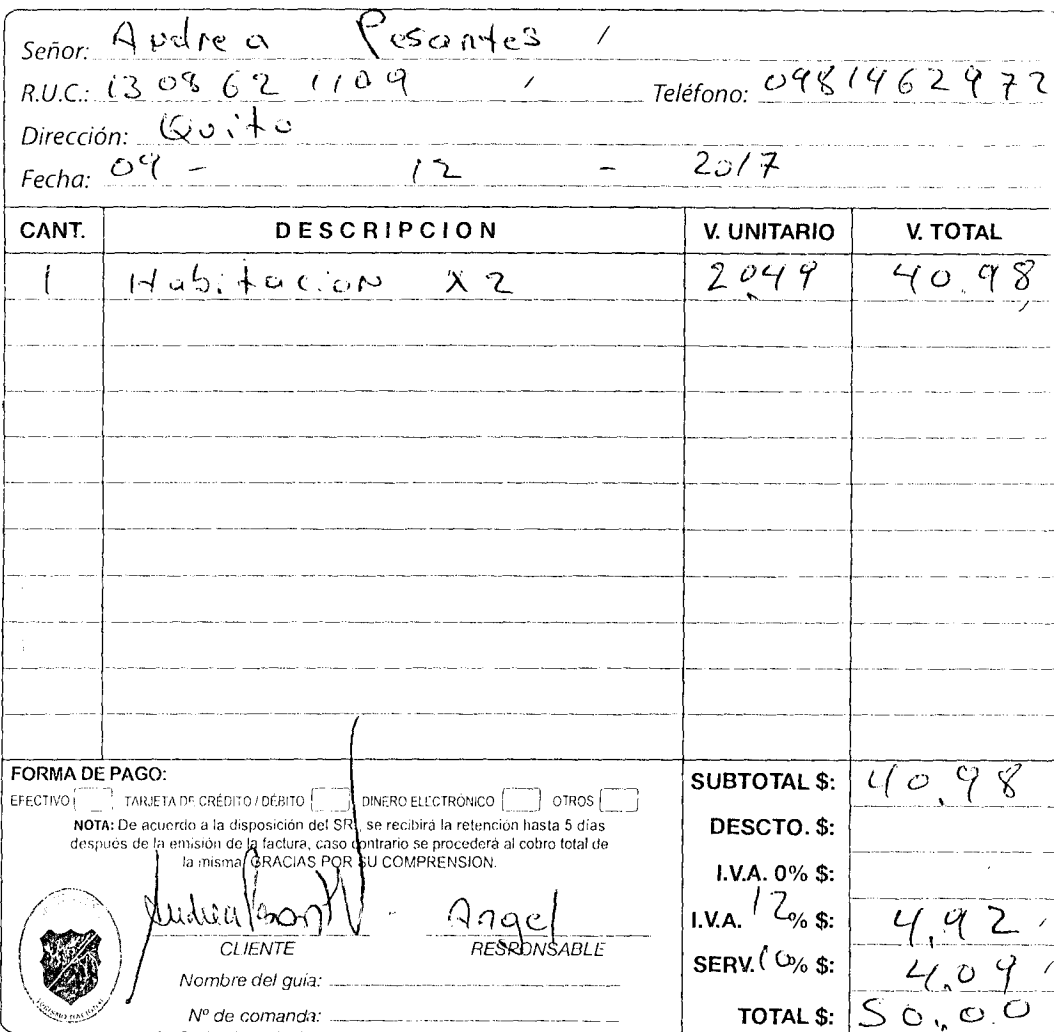 Señor: Andrea Pesantes
R.U.C.: 1308621109 Teléfono: 0981962972
Dirección: Quito
Fecha: 09 - 12 - 2017
CANT. DESCRIPCION V. UNITARIO V. TOTAL
1 Habitacion X2 20.49 40.98
FORMA DE PAGO:
EFECTIVO TARJETA DE CRÉDITO / DÉBITO DINERO ELECTRÓNICO OTROS
NOTA: De acuerdo a la disposición del SRI, se recibirá la retención hasta 5 días
después de la emisión de la factura, caso contrario se procederá al cobro total de
la misma. GRACIAS POR SU COMPRENSION.
Angel
CLIENTE RESPONSABLE
Nombre del guía:
Nº de comanda:
TURISMO NACIONAL
SUBTOTAL $: 40.98
DESCTO. $:
I.V.A. 0% $:
I.V.A. 12% $: 4,92
SERV. 10% $: 4.09
TOTAL $: 50.00